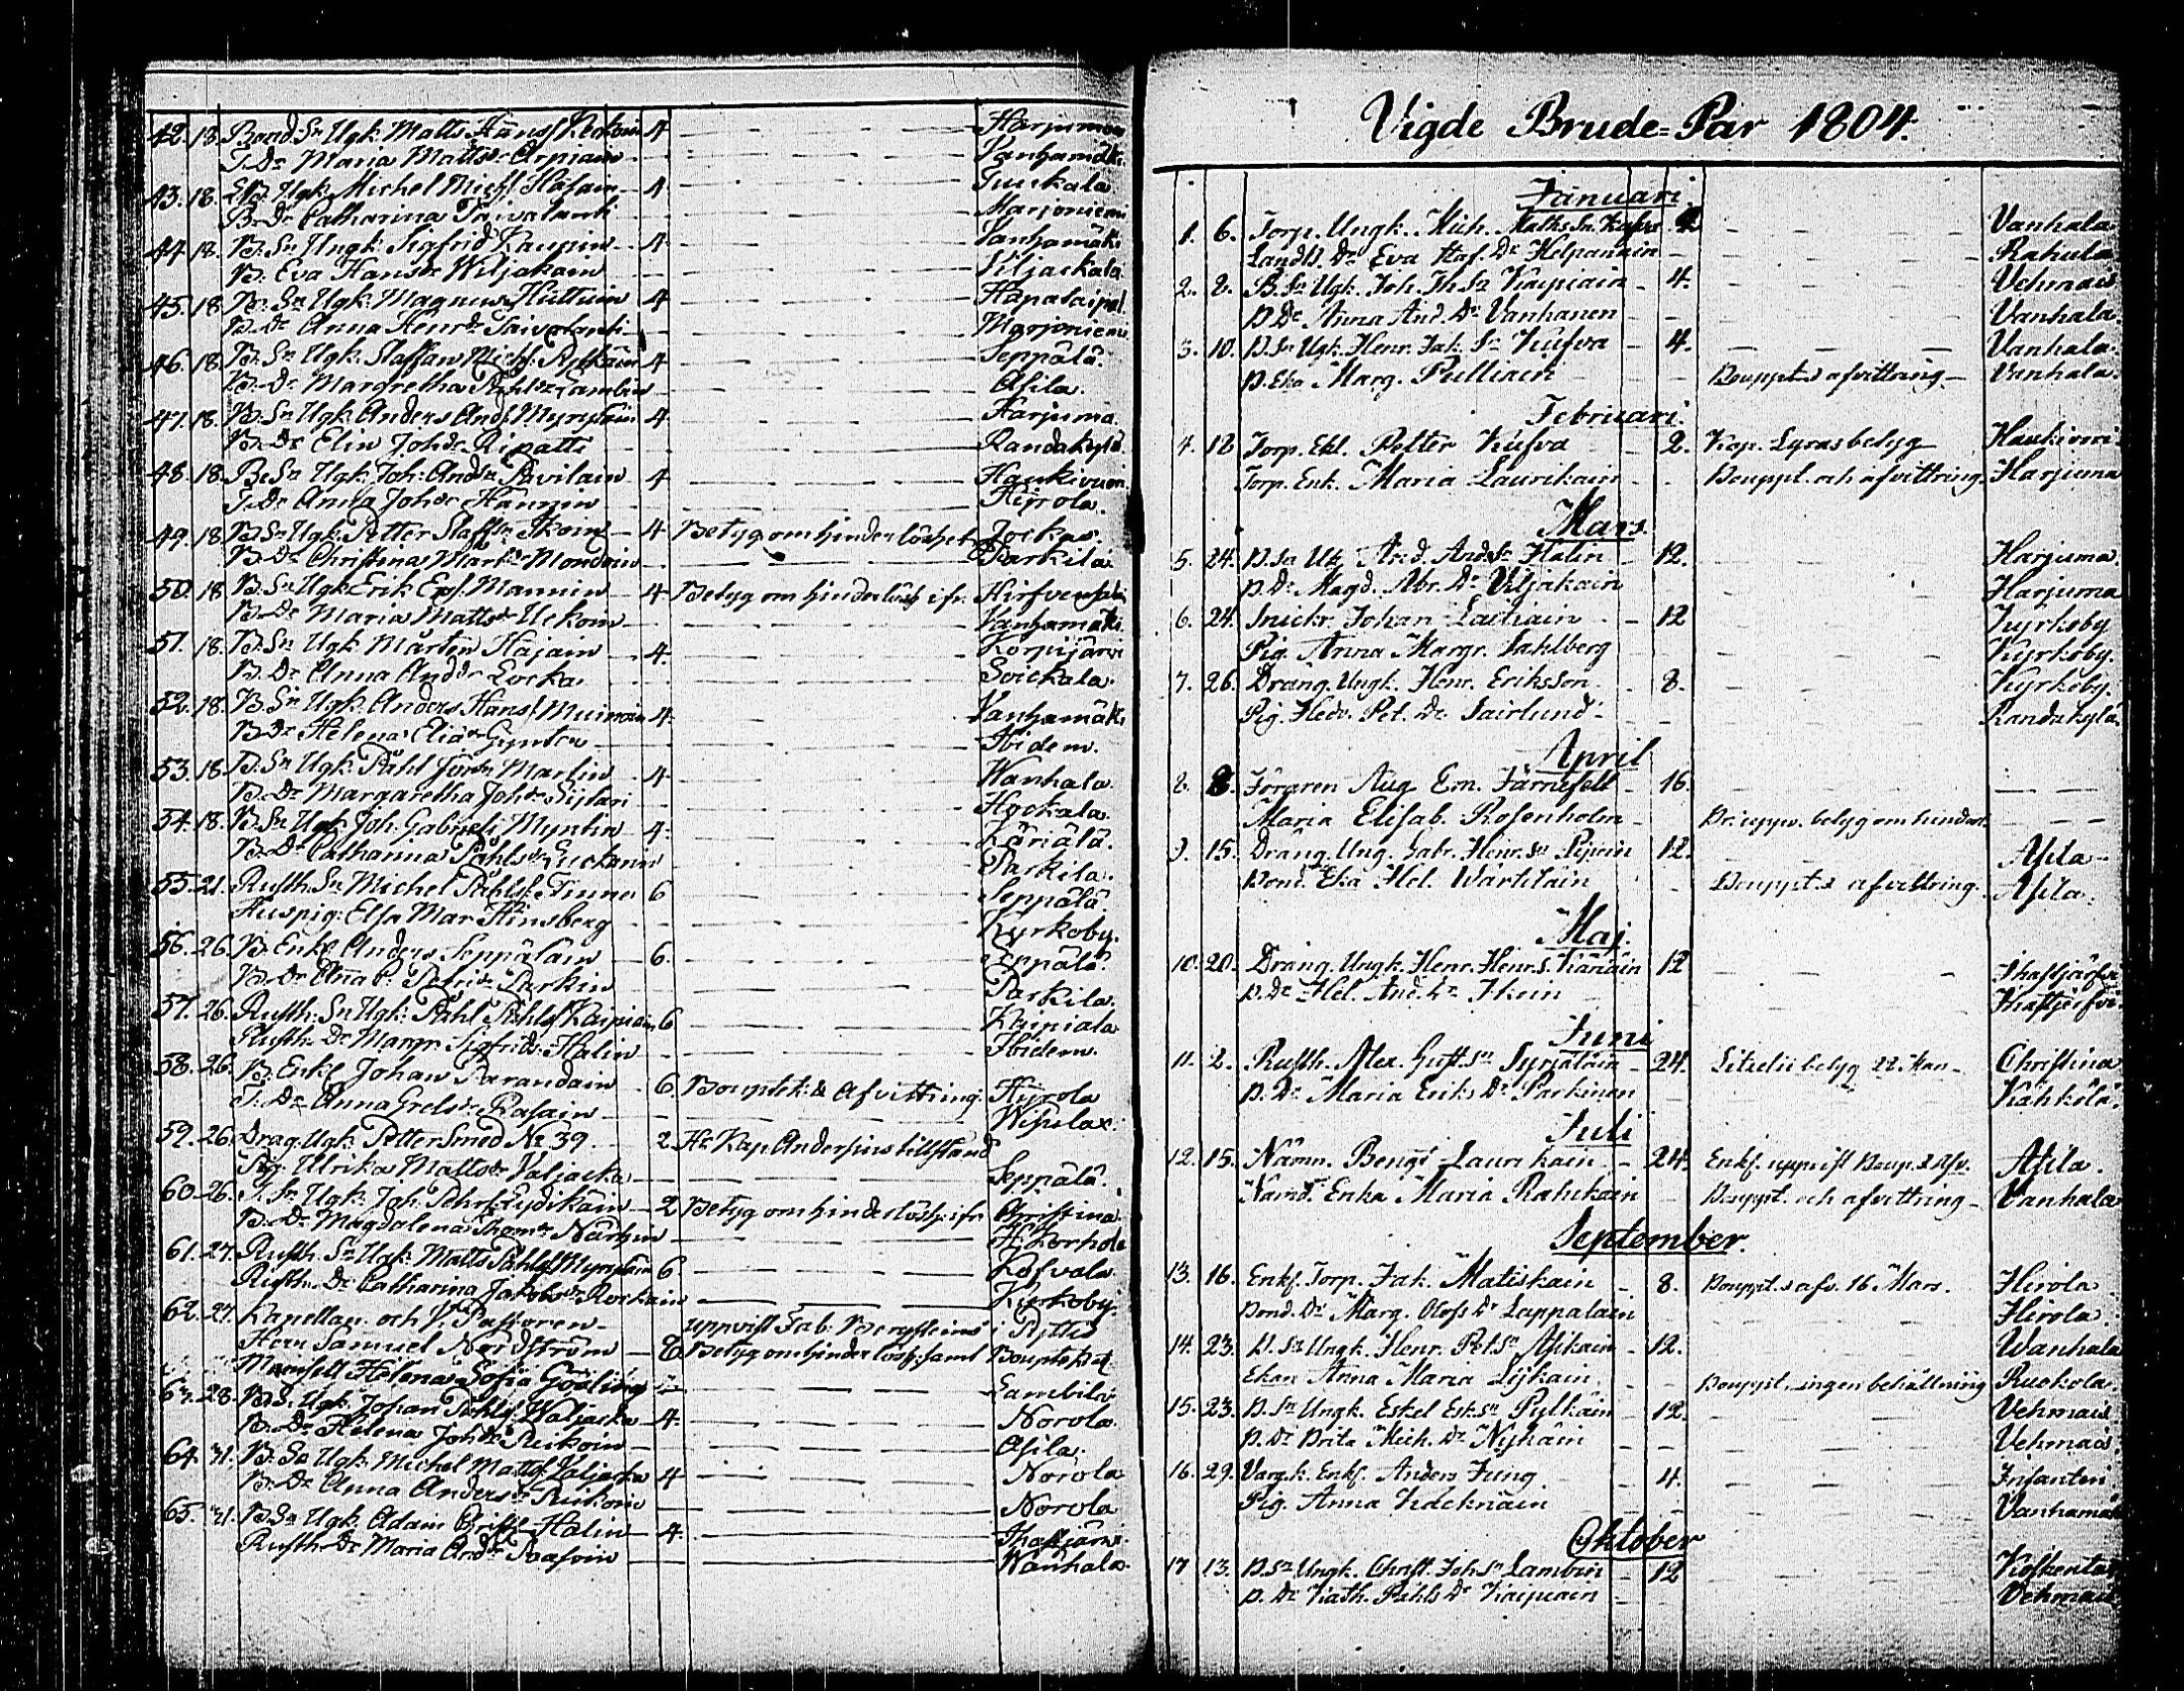 42. 18. Bond. Sn Ugk. Matts Hans/ 4 Harjuma
T. Dr Maria Mattsdr Arpiain Vanhamäki
43. 18. Ugk. Michel Mich/ Häfain 4 Tuukala
B. Dr Catharina Taivalanti Marjoniemi
44. 18. B. Sn Ungk. Sigfrid Kaupin 4 Vanhamäki
B. Eva Hansdr Wiljakain Viljackala
45. 18. B. Sn Ugk. Magnus Huttuin 4 Hapataipal
B. Dr Anna Henrdr Taivalanti Marjoniemi
46. 18. B. Sn Ugk. Staffan Mich/ 4 Seppälä
B. Dr Margretha Påhlsdr Lambin Asila.
47. 18. B. Sn Ugk. Anders And/ Myryläin 4 Harjuma.
B. Dr Elin Johdr Ripatti Randakylä
48. 18. B. Sn Ugk. Joh. Andsn Pavilain 4 Haukivuori
T. Dr Anna Johdr Hännin Hirola.
49. 18. B. Sn Ugk. Petter Staffsn Ikoin 4 Betyg om hinderlöshet Jockas.
B. Dr Christina Martdr Mondoin Parkila
50. 18. B. Sn Ugk. Erik Er/ Mannin 4 Betyg om hinderlösh. ifr. Hirfvensalmi
B. Dr Maria Mattsdr Uckoin Vanhamäki
51. 18. B. Sn Ugk Mårten Häjain 4. Korpijärvi
B. Dr Anna Anddr Locka Soickala.
52. 18. B. Sn Ugk. Anders Hans/ Muinoin 4. Vanhamäki
B. Dr Helena Eliædr Gynter Ibidem.
53. 18. B. Sn Ugk. Påhl Jöransn Martin 4 Wanhala.
B. Dr Margaretha Johdr Sijlari Hockala.
54. 18. B. Sn Ugk. Joh. Gabriels/ Myntin 4. Käriälä.
B. Dr Catharina Påhlsdr Luckann Parkila.
55. 21. Rusth. Sn Michel Påhls/ Finne 6 Seppälä
Huspig. Elsa Mar Hinsberg Kyrkoby.
56. 26. B. Enkl Anders Seppäläin 6. Seppälä.
B. Dr Anna C. Petridr Parkin Parkila.
57. 26. Rusth. Sn Ugk. Påhl Påhls/ Kaipiain 6 Kaipiala
Rusth. Dr Margr. Sigfridsdr Halin Ibidem.
58. 26. B. Enkl Johan Parandain 6 Bouptekn. & Afvittring. Hirola
T. Dr Anna Grelsdr Rasain Wisulax.
59. 26. Drag. Ugk. Petter Smed No 39. 2. Hr Kap. Andersins tillstånd
Pig. Ulrika Mattsdr Valjacka Seppälä.
60. 26. T. Sn Ugk. Joh. Pehrs/ Lydikäin 2 Betyg om hinderlösh. ifr. Christina.
B. Dr Magdalena Thomdr Närhin Korhola
61. 27. Rusth. Sn Ugk. Matts Påhls/ Myryläin 6 Låfvala
Rusth. Dr Catharina Jakobsdr Rockain Kyrkoby.
62. 27. Kapellan och V. Pastoren uppvist Fab. Bergsteins i Pyttis
Herr Samuel Nordström 8 Betyg om hinderlösh. samt Bouptekn.
Mamsell Helena Sofia Gösling
63. 28. B. Sn Ugk. Johan Påhls/ Waljacka 4. Lambila
B. Dr Helena Johdr Reikoin Norola.
64. 31. B. Sn Ugk. Michel Matts/ Valjacka 4 Asila. Norola
B. Dr Anna Andersdr Reikoin Norola
65. 31. B. Sn Ugk. Adam Christ/ Halin 4. Ihastjärvi.
Rusth. Dr Maria Anddr Paasoin Wanhala
Vigde Brude=Par 1804.
Januari.
1. 6. Torp. Ungk. Mich. Maths Sn Kufva 2 Vanhala
Landb. Dr Eva Staf. Dr Helpänäin Rahula
2. 8. B. Sn Ugk. Joh. Jh Sn Kaipiain 4. Vehmais
B. Dr Anna And. Dr Vanhanen Vanhala.
3. 10. B. Sn Ugk. Henr. Jak. Sn Kufva 4. Vanhala.
B. Eka Marg. Pulliain Bouppt. & afvittring Vanhala.
Februari.
4. 18 Torp. Ekl. Petter Kufva 2. Kap. Lyras betyg Haukivuori
Torp. Enk. Maria Laurikain Bouppt. och afvittring. Harjuma
Mars.
5. 24. B. Sn Ug. And. And. Sn Halin 12. Harjuma.
B. Dr Magd. Abr. Dr Viljakain Harjuma
6. 24. Snickr. Johan Laitiain 12 Kyrkoby
Pig. Anna Margr. Sahlberg Kyrkoby.
7. 26. Dräng. Ungk. Henr. Eriksson 8. Kyrkoby.
Pig. Hedv. Pet. Dr Sairlund Randakylä
April
8. 8. Föraren Aug. Em. Järnefelt 16.
Maria Elisab. Rosenholm Br. uppv. betyg om hinder.
9. 15. Dräng. Ung. Gabr. Henr. Sn Pipoin 12. Asila
Bond. Eka Hel. Wärtiläin Bouppt. & afvittring. Asila.
Maj.
10. 20. Dräng. Ungk. Henr. Henr. S. Käriäin 12 Ihastjärfvi
B. Dr Hel. And. Dr Ikoin Ihastjärfvi
Juni
11. 2. Rusth. Alex. Gust. Sn Syrjäläin 24. betyg 22 Mar. Christina
B. Dr Maria Eriks Dr Parkinen Kähkölä.
Juli
12. 15. Nämn. Bengt Laurikain 24. Enkl. uppvist Boup. & Afv. Asila.
Nämd. Enka Maria Rahikain Bouppt. och afvittring Vanhala
September.
13. 16. Enkl. Torp. Jak. Matiskain 8. Bouppt. & afv. 16 Mars. Hirola
Bond. Dr Marg. Olofs Dr Lappalain Hirola.
14. 23. B. Sn Ungk. Henr. Pet. Sn Asikain 12. Wanhala
Ekan Anna Maria Lijkain Bouppt. ingen behållning Ruokola
15. 23. B. Sn Ungk. Eskel Esk. Sn Pylkäin 12. Vehmais
B. Dr Brita Mich. Dr Nykäin Vehmais.
16. 29. Varg. k. Enkl. Anders Jung 4. Infanteri
Pig. Anna Käcknäin Vanhamäk
Oktober
17 13. B. Sn Ungk. Christ. Joh. Sn Lambin 12 Koskentai
B. Dr Kath. Påhls Dr Kaipiain Vehmais